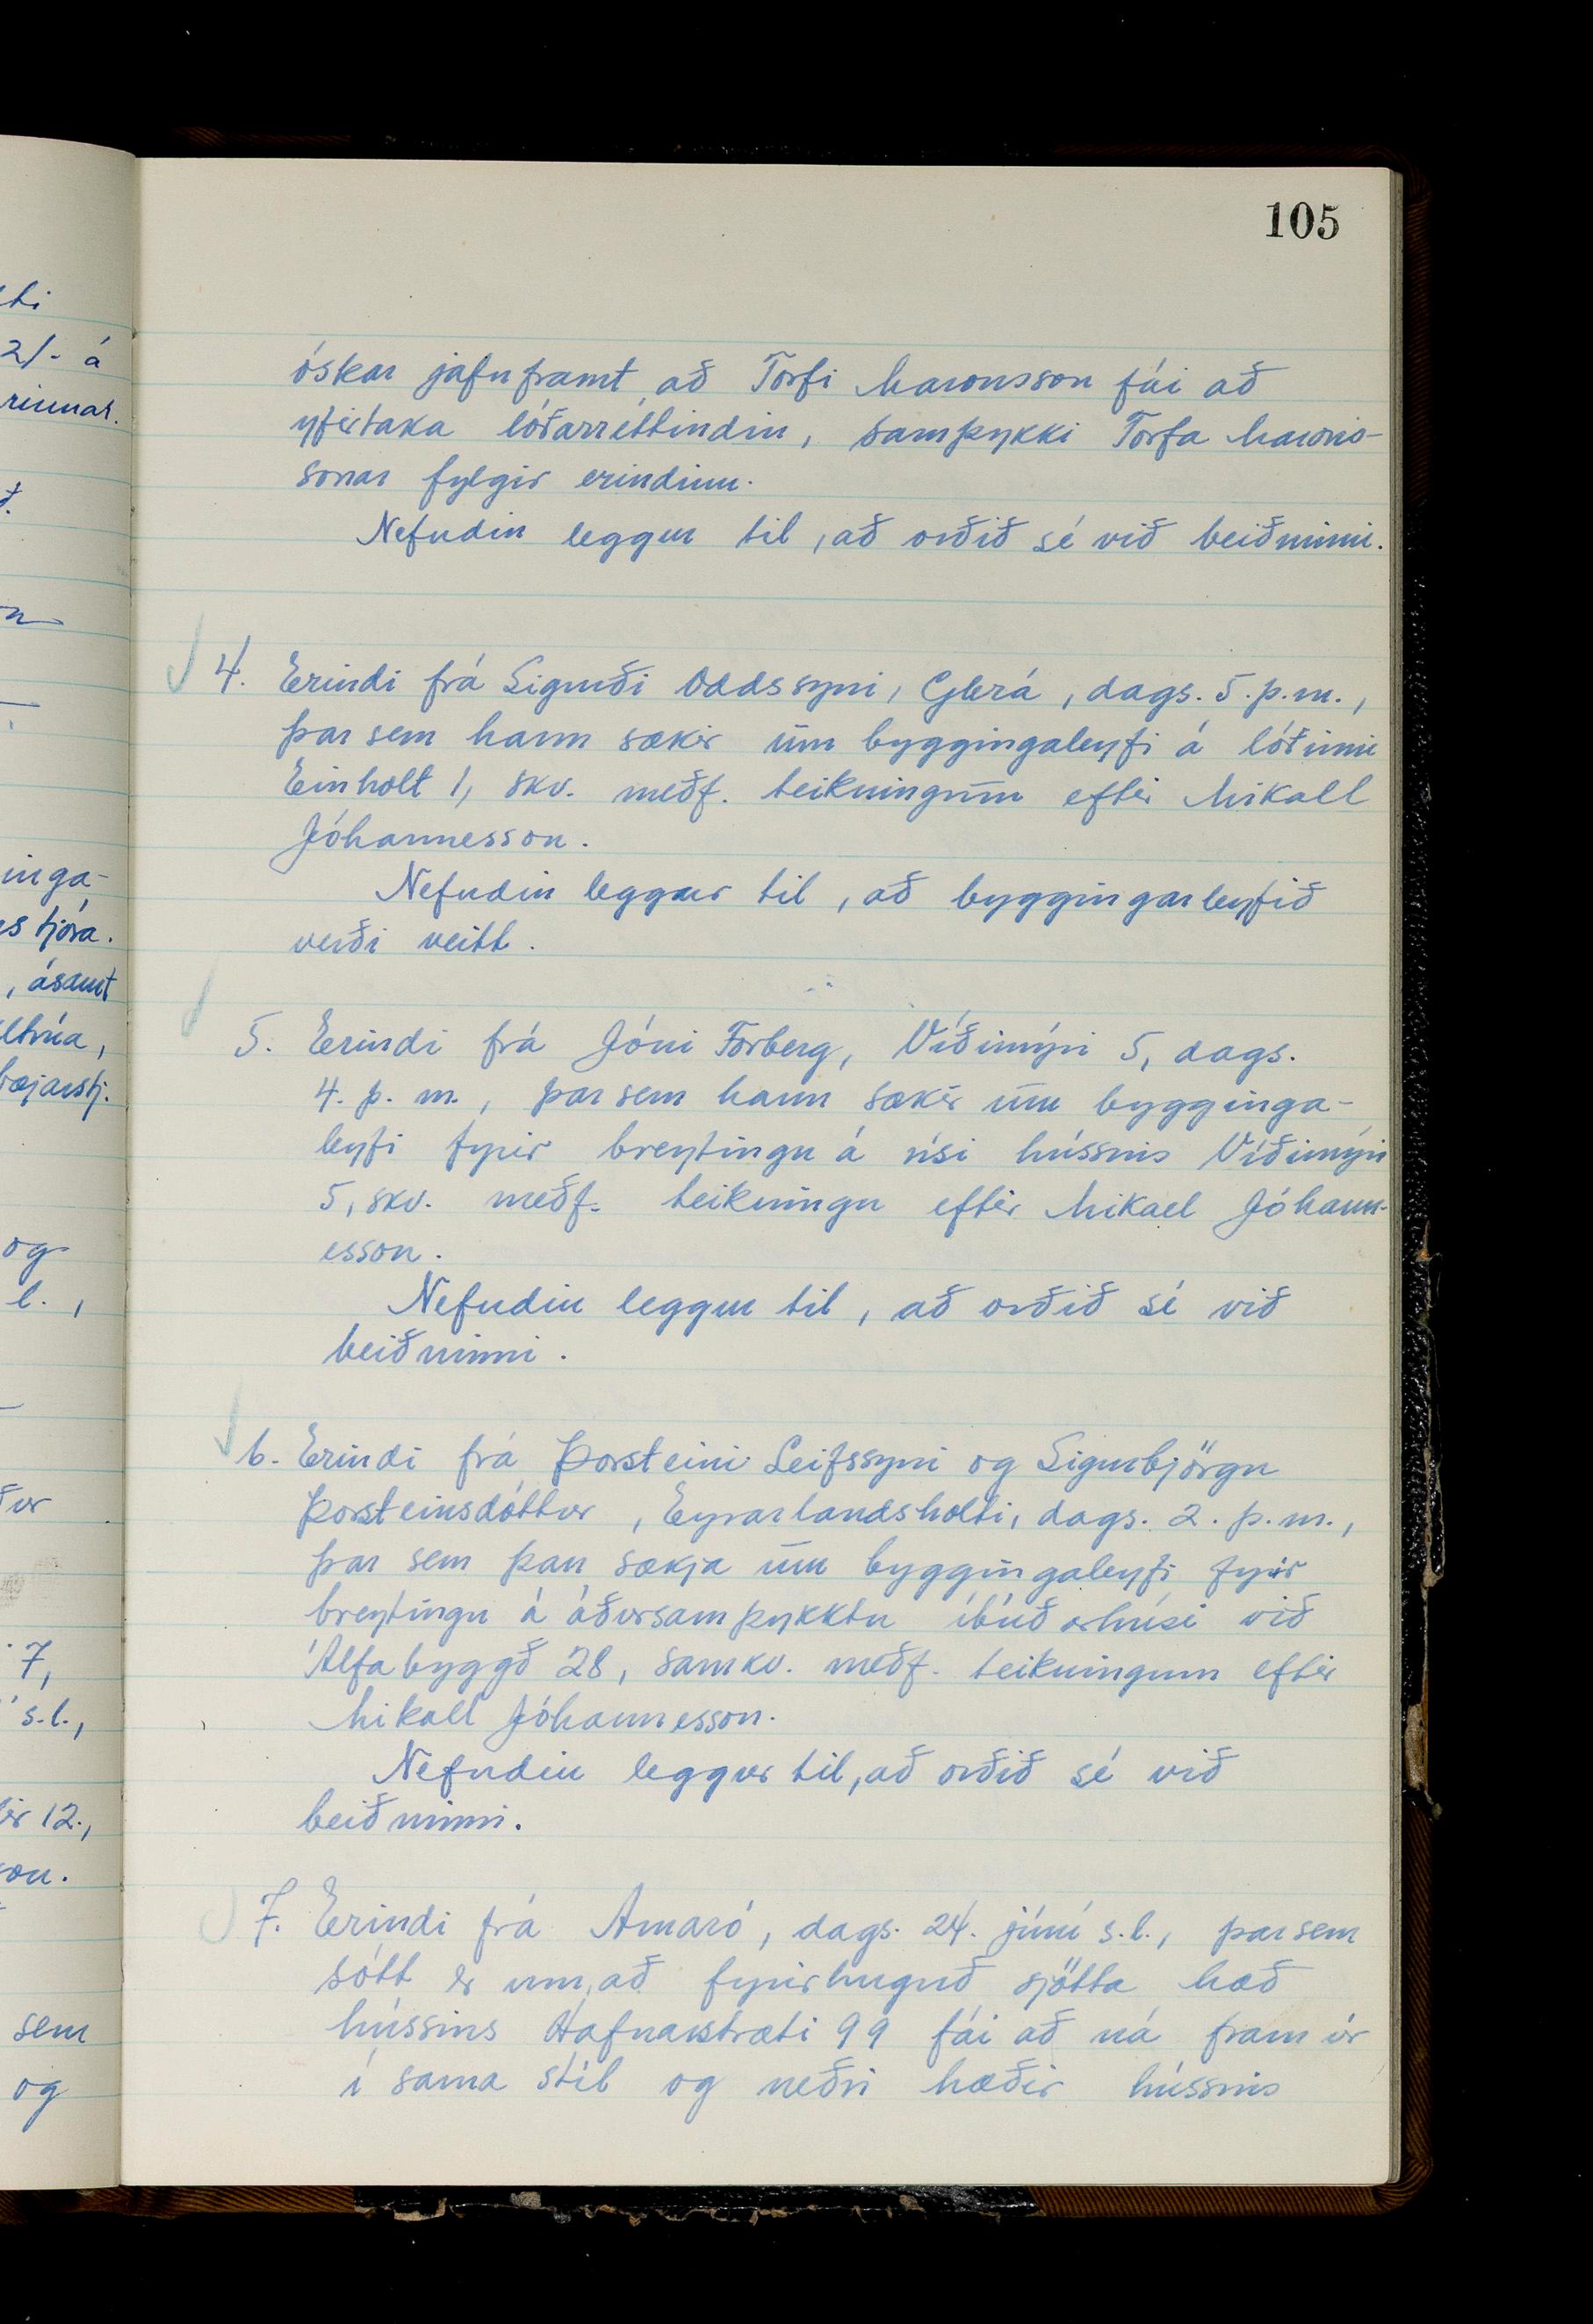 105
óskar jafnframt, að Torfi Maronsson fái að
yfirtaka lóðarréttindin, samþykki Torfa Marons-
sonar fylgir erindinu.
Nefndin leggur til, að orðið sé við beiðninni.
4. Erindi frá Sigurði Oddssyni, Glerá, dags. 5. þ.m.,
þar sem hann sækir um byggingaleyfi á lóðinni
Einholt 1, skv. meðf. teikningum eftir Mikael
Jóhannesson.
Nefndin leggur til, að byggingarleyfið
verði veitt.
5. Erindi frá Jóni Forberg, Víðimýri 5, dags.
4. þ. m., þar sem hann sækir um bygginga-
leyfi fyrir breytingu á risi hússins Víðimýri
5, skv. meðf. teikningu eftir Mikael Jóhann-
esson.
Nefndin leggur til, að orðið sé við
beiðninni.
6. Erindi frá Þorsteini Leifssyni og Sigurbjörgu
Þorsteinsdóttur, Eyrarlandsholti, dags. 2. þ.m.,
þar sem þau sækja um byggingaleyfi fyrir
breytingu á áðursamþykktu íbúðarhúsi við
Álfabyggð 28, samkv. meðf. teikningum eftir
Mikael Jóhannesson.
Nefndin leggur til, að orðið sé við
beiðninni.
7. Erindi frá Amaró, dags. 24. júní s.l., þar sem
sótt er um, að fyrirhuguð sjötta hæð
hússins Hafnarstræti 99 fái að ná fram úr
í sama stíl og neðri hæðir hússins
ti
2/- á
rinnar.
inga-
stjóra.
, ásamt
lltrúa,
bæjarstj.
og
l. ,
ur
7,
s.l.,
12.,
son.
sem
og